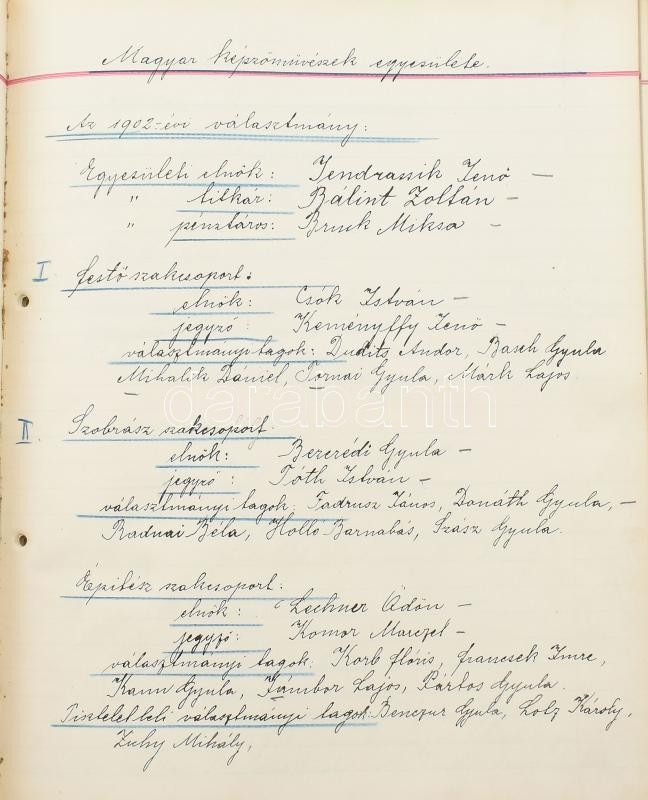 Magyar képzőművészek egyesülete.
Az 1902-évi választmány:
Egyesületi elnök: Jendrassik Jenő —
" titkár: Bálint Zoltán —
" pénztáros: Bruck Miksa —
I festő szakcsoport:
elnök: Csók István —
jegyző: Keményffy Jenő —
választmányi tagok: Dudits Andor, Basch Gyula
Mihalik Dániel, Tornai Gyula, Márk Lajos.
—
darabanth
II. Szobrász szakcsoport.
elnök: Bezerédi Gyula —
jegyző: Tóth István —
választmányi tagok: Fadrusz János, Donáth Gyula, —
Radnai Béla, Holló Barnabás, Szász Gyula.
Építész szakcsoport:
elnök: Lechner Ödön —
jegyző: Komor Marczel —
választmányi tagok: Korb flóris, francsek Imre,
Kann Gyula, Jámbor Lajos, Pártos Gyula.
Tiszteletbeli választmányi tagok: Benczur Gyula, Lotz Károly,
Zichy Mihály,